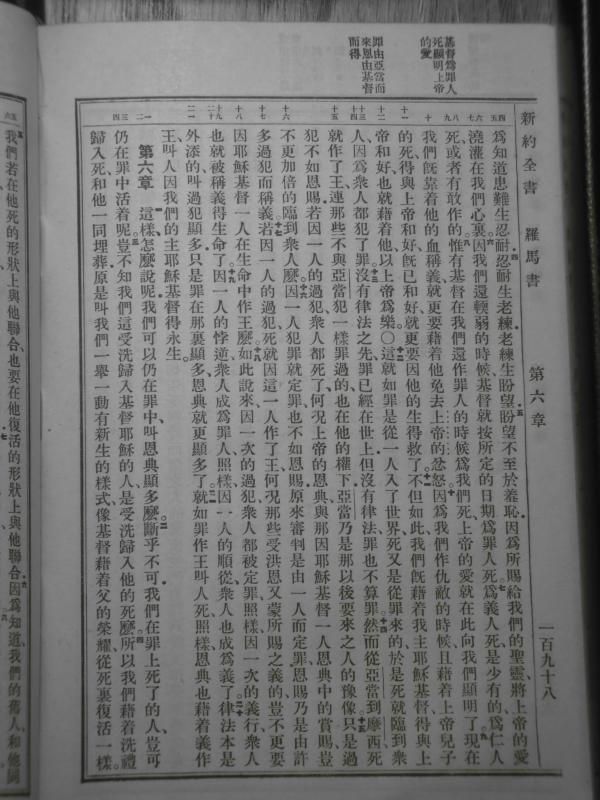 新約全書 羅馬書 第六章 一百九十八
基督爲罪人
死顯明上帝
的愛
罪由亞當而
來恩由基督
而得
爲知道患難生忍耐忍耐生老練老練生盼望盼望不至於羞恥因爲所賜給我們的聖靈將上帝的愛
澆灌在我們心裏因我們還輭弱的時候基督就按所定的日期爲罪人死爲義人死是少有的爲仁人
死或者有敢作的惟有基督在我們還作罪人的時候爲我們死上帝的愛就在此向我們顯明了現在
我們旣靠着他的血稱義就更要藉着他免去上帝的忿怒因爲我們作仇敵的時候且藉着上帝兒子
的死得與上帝和好旣已和好就更要因他的生得救了不但如此我們旣藉着我主耶穌基督得與上
帝和好也就藉着他以上帝爲樂〇這就如罪是從一人入了世界死又是從罪來的於是死就臨到衆
人因爲衆人都犯了罪沒有律法之先罪已經在世上但沒有律法罪也不算罪然而從亞當到摩西死
就作了王連那些不與亞當犯一樣罪過的也在他的權下亞當乃是那以後要來之人的豫像只是過
犯不如恩賜若因一人的過犯衆人都死了何況上帝的恩典與那因耶穌基督一人恩典中的賞賜豈
不更加倍的臨到衆人麼因一人犯罪就定罪也不如恩賜原來審判是由一人而定罪恩賜乃是由許
多過犯而稱義若因一人的過犯死就因這一人作了王何況那些受洪恩又蒙所賜之義的豈不更要
因耶穌基督一人在生命中作王麼如此說來因一次的過犯衆人都被定罪照樣因一次的義行衆人
也就被稱義得生命了因一人的悖逆衆人成爲罪人照樣因一人的順從衆人也成爲義了律法本是
外添的叫過犯顯多只是罪在那裏顯多恩典就更顯多了就如罪作王叫人死照樣恩典也藉着義作
王叫人因我們的主耶穌基督得永生
第六章 這樣怎麼說呢我們可以仍在罪中叫恩典顯多麼斷乎不可我們在罪上死了的人豈可
仍在罪中活着呢豈不知我們這受洗歸入基督耶穌的人是受洗歸入他的死麼所以我們藉着洗禮
歸入死和他一同埋葬原是叫我們一舉一動有新生的樣式像基督藉着父的榮耀從死裏復活一樣
我們若在他死的形狀上與他聯合也要在他復活的形狀上與他聯合因爲知道我們的舊人和他同